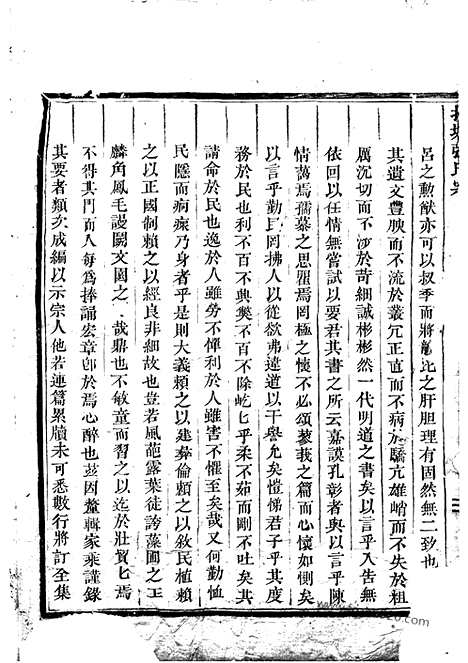 呂之勳猷亦可以叔季而將之肝胆理有固然無二致也
其遺文豐腴而不流於叢冗正直而不病於驕亢雄峭而不失於粗
厲沉切而不涉於苛細誠彬彬然一代明道之書矣以言乎入告無
依回以任情無嘗試以要君其書之所云嘉謨孔彰者與以言乎陳
情藹焉孺慕之思瞿焉罔極之懷不必頌蓼莪之篇而心懷如惻矣
以言乎勤民罔拂人以從欲弗違道以干譽允矣愷悌君子乎其度
務於民也利不百不興獘不百不除屹匕乎柔不茹而剛不吐矣其
請命於民也逸於人雖勞不憚利於人雖害不懼至矣哉又何勤恤
民隱而痌瘝乃身者乎是則大義賴之以建彞倫賴之以敘民植賴
之以正國制賴之以經良非細故也豈若風葩露葉徒誇藻囿之工
麟角鳳毛謾闘文園之哉鼎也不敏童而習之以迄於壯實匕焉
不得其門而入每為捧誦宏章卽於焉心醉也茲因釐輯家乘謹錄
其要者類次成編以示宗人他若連篇累牘未可悉數行將訂全集